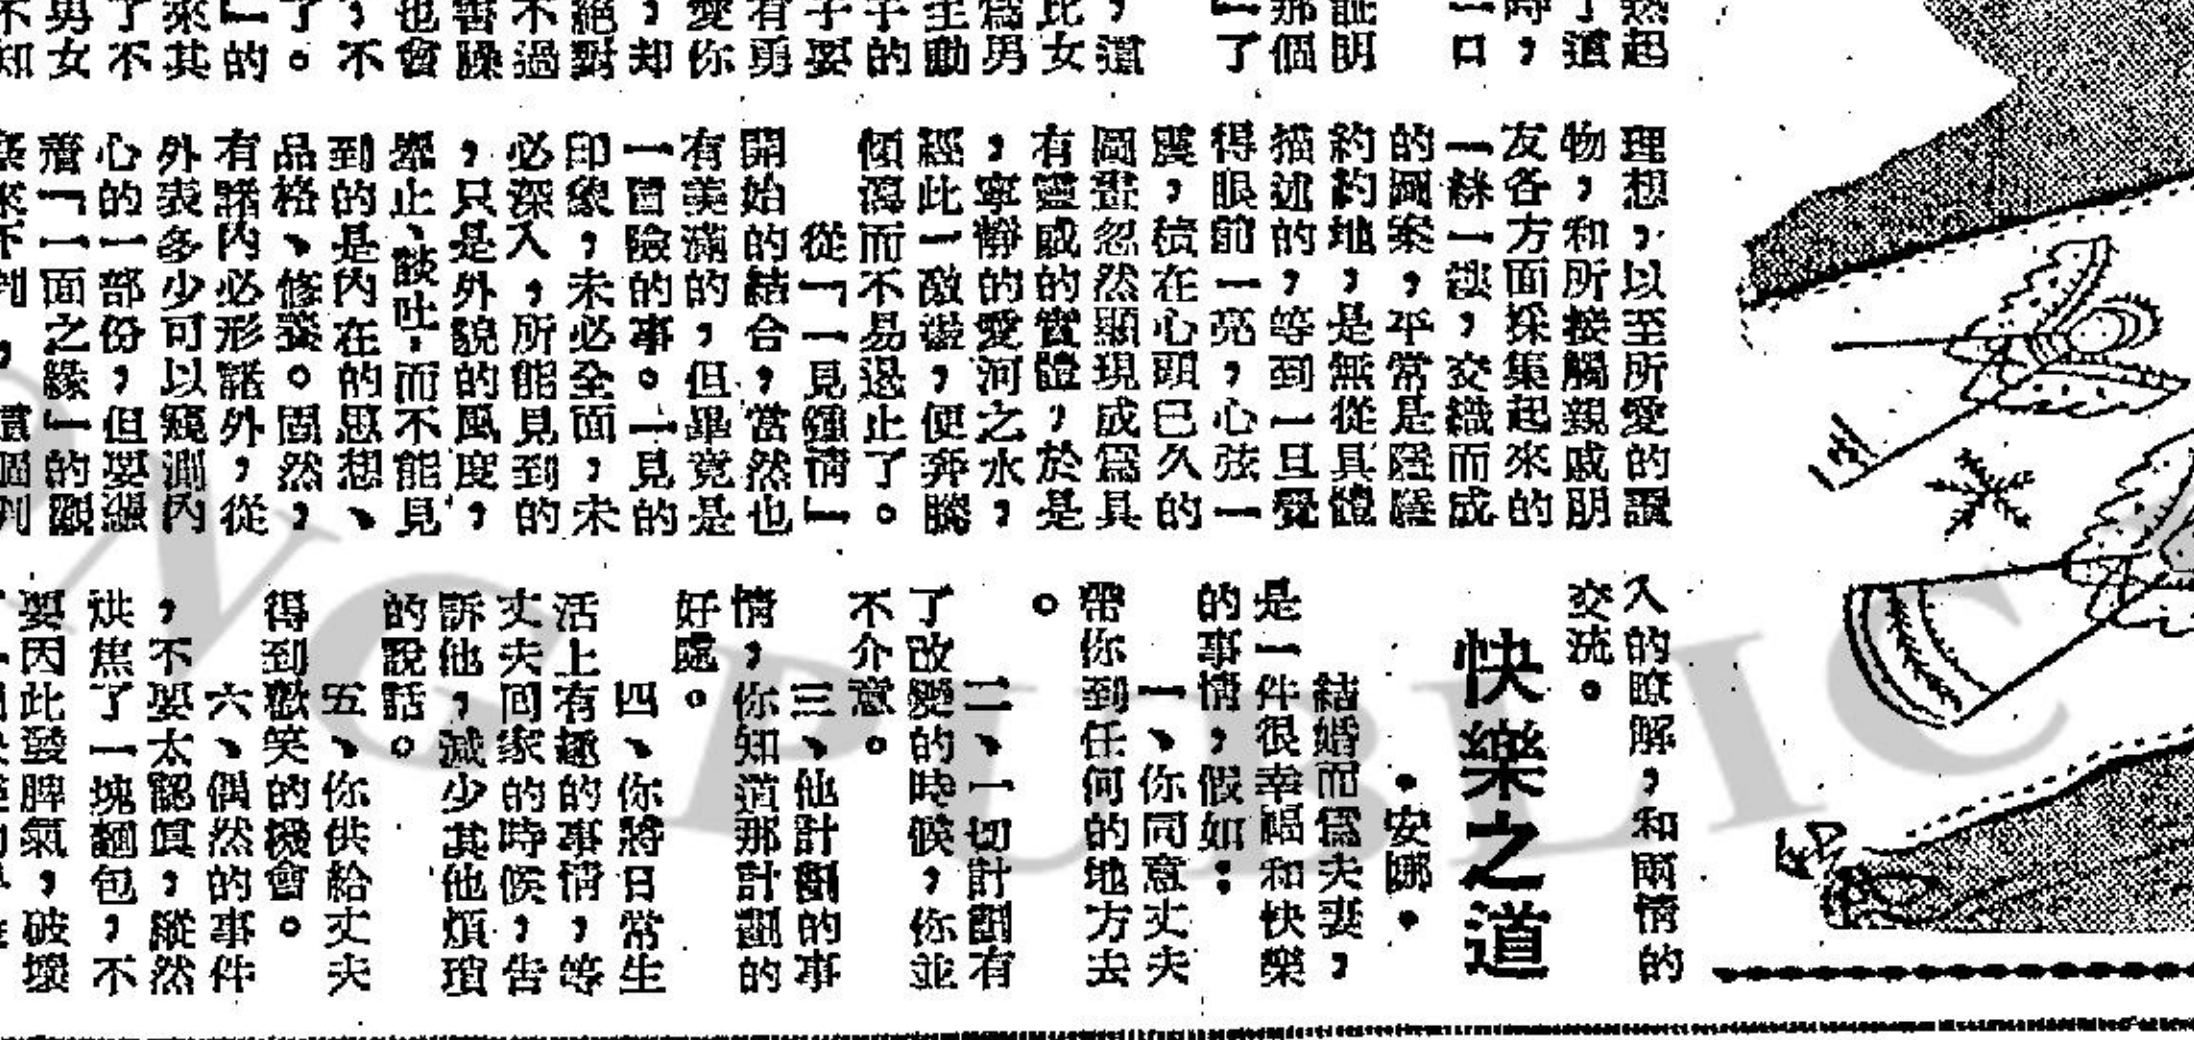 熱起
了，這
時，
一口
証明
那個
「了
，這
比女
爲男
主動
乎的
子要
有勇
愛你
，却
絕對
不過
害臊
也會
，不
了。
」的
來其
了不
男女
不知
理想，以至所愛的讀
物，和所接觸親戚朋
友各方面採集起來的
一絲一縷，交織而成
的圖案，平常是隱隱
約約地，是無從具體
描述的，等到一旦覺
得眼前一亮，心弦一
震，積在心頭已久的
圖畫忽然顯現成爲具
有靈感的實體，於是
，寧靜的愛河之水，
經此一激盪，便奔騰
傾瀉而不易遏止了。
從「一見鍾情」
開始的結合，當然也
有美滿的，但畢竟是
一冒險的事。一見的
印象，未必全面，未
必深入，所能見到的
，只是外貌的風度，
舉止、談吐，而不能見
到的是內在的思想、
品格、修養。固然，
有諸內必形諸外，從
外表多少可以窺測內
心的一部份，但要憑
着「一面之緣」的觀
入的瞭解，和兩情的
交流。
快樂之道
・安娜・
結婚而爲夫妻，
是一件很幸福和快樂
的事情，假如：
一、你同意丈夫
帶你到任何的地方去
。
二、一切計劃有
了改變的時候，你並
不介意。
三、他計劃的事
情，你知道那計劃的
好處。
四、你將日常生
活上有趣的事情，等
丈夫回家的時候，告
訴他，減少其他煩瑣
的說話。
五、你供給丈夫
得到歡笑的機會。
六、偶然的事件
，不要太認眞，縱然
烘焦了一塊麵包，不
要因此發脾氣，破壞